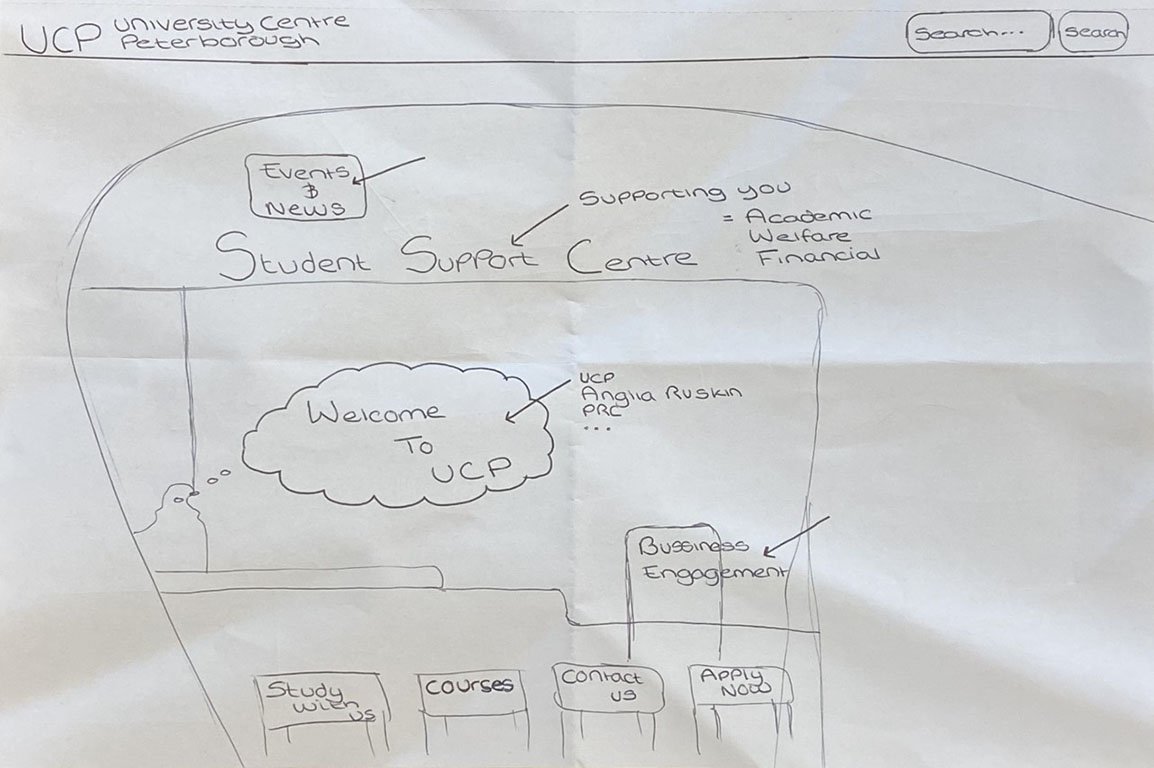 UCP University Centre
Peterborough
Search...
Search
Events
&
News
Supporting you
= Academic
Welfare
Financial
Student Support Centre
UCP
Anglia Ruskin
PRC
...
Welcome
To
UCP
Bussiness
Engagement
Study
with
us
Courses
Contact
us
Apply
Now